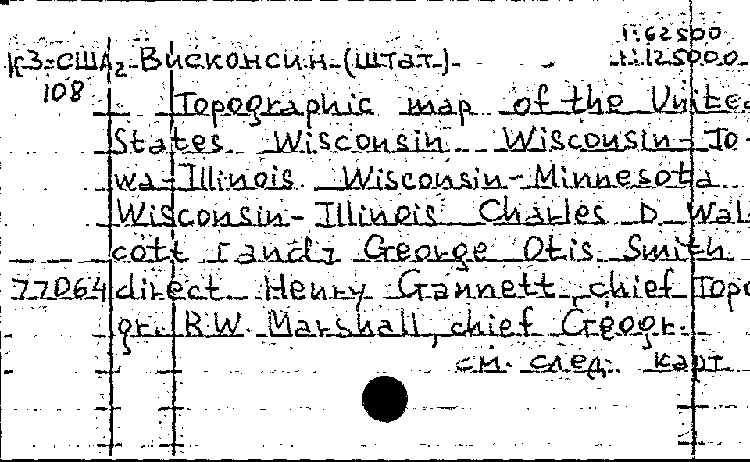 1:62500
К3-США₂-Висконсин-(штат)- 1:125000
108
Topographic map of the United
States Wisconsin Wisconsin-Io-
wa-Illinois Wisconsin-Minnesota
Wisconsin-Illinois Charles D Wal-
cott [and] George Otis Smith
77064 direct Henry Gannett, chief Topo
gr. R.W. Marshall, chief Geogr.
см. след. карт